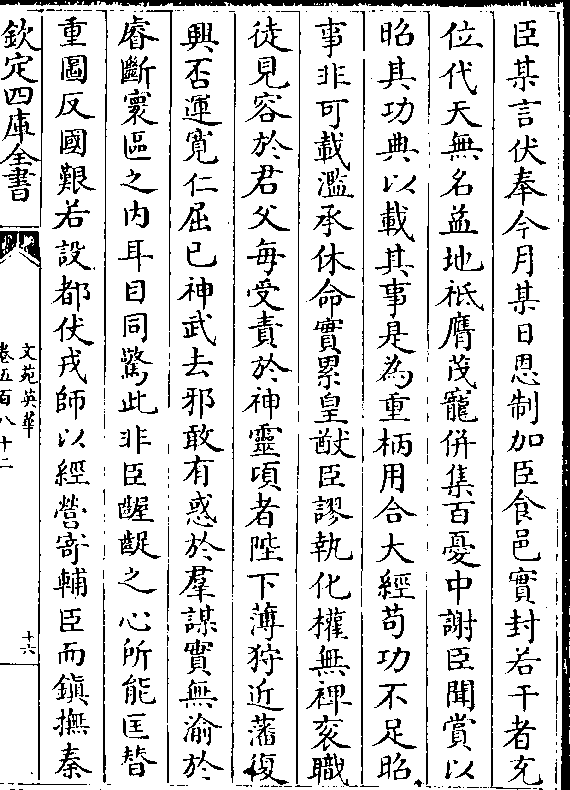 臣某言伏奉今月某日恩制加臣食邑實封若干者充
位代天無名益地祗膺茂寵併集百憂中謝臣聞賞以
昭其功典以載其事是為重柄用合大經茍功不足昭
事非可載濫承休命實累皇猷臣謬執化權無裨衮職
徒見容於君父每受責於神靈頃者陛下薄狩近藩復
興否運寛仁屈已神武去邪敢有惑於羣謀實無渝於
睿斷寰區之内耳目同驚此非臣齷齪之心所能匡替
重圖反國艱若設都伏戎師以經營寄輔臣而鎮撫秦
欽定四庫全書
文苑英華
卷五百八十二
十六